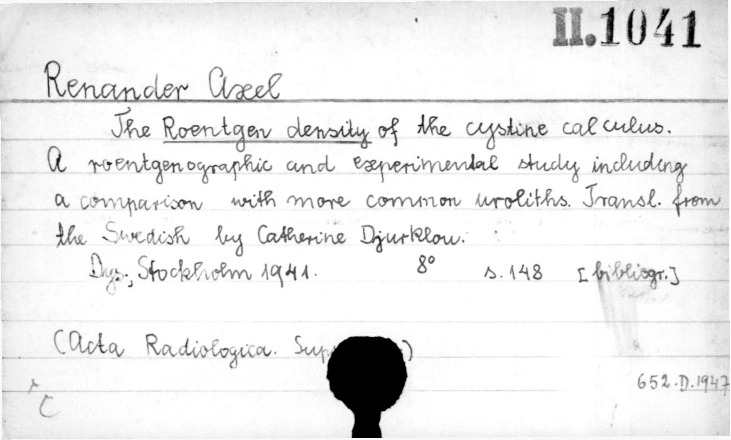 II.1041
Renander Axel
The Roentgen density of the cystine calculus.
A roentgenographic and experimental study including
a comparison with more common uroliths. Transl. from
the Swedish by Catherine Djurklou.
Stockholm 1941. 8° s. 148 [bibliogr.]
(Acta Radiologica.
652.D.1947